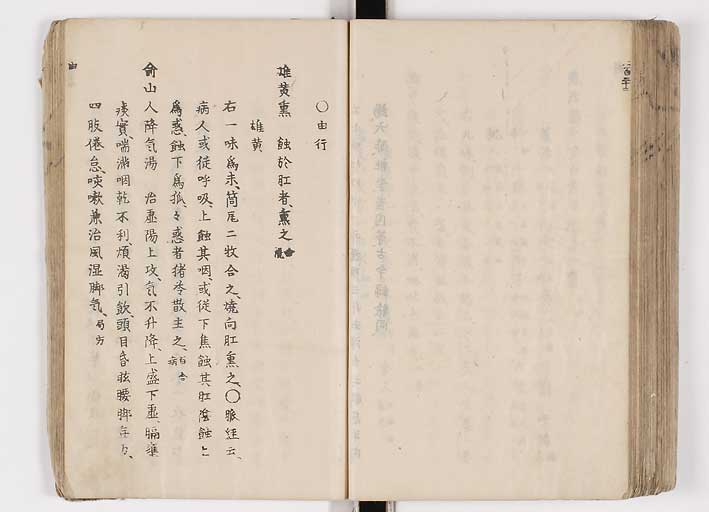 〇由行
雄黄熏 蝕於肛者、熏之
雄黄
右一味為末、筒瓦二枚合之、燒向肛熏之、〇脈経云、
病人或従呼吸、上蝕其咽、或従下焦蝕其肛陰、蝕上
為惑、蝕下為狐、々惑者猪苓散主之、
俞山人降気湯 治虚陽上攻、気不升降、上盛下虚、膈壅
痰實、喘満咽乾不利、煩渇引飲、頭目昏眩、腰脚無力、
四肢倦怠、咳嗽、兼治風湿脚気、局方
由